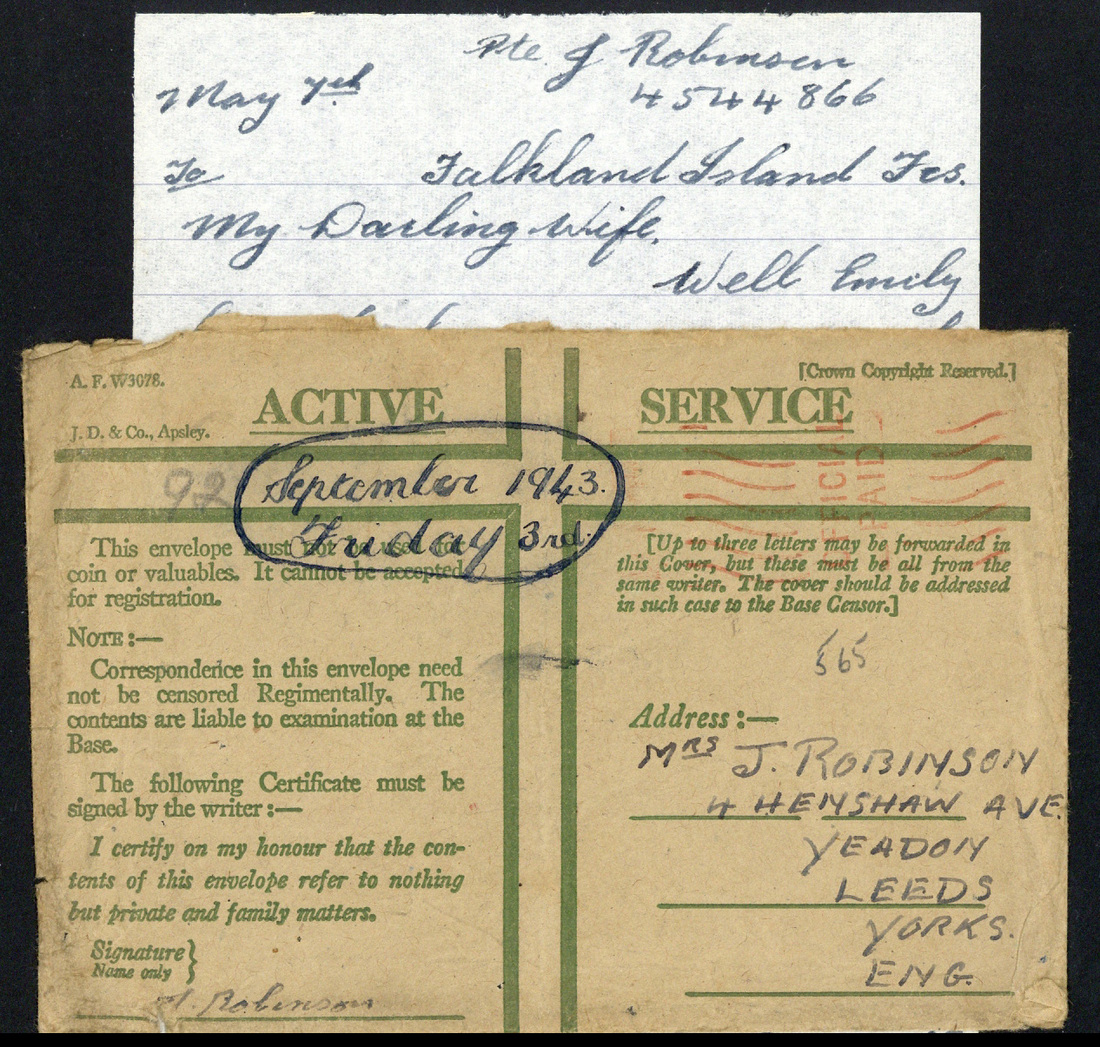 Pte. J Robinson
May 7th
4544866
To
Falkland Island Fcs.
My Darling Wife,
Well Emily
A. F. W3078.
[Crown Copyright Reserved.]
ACTIVE SERVICE
J. D. & Co., Apsley.
92
September 1943.
Friday 3rd.
OFFICIAL
PAID
This envelope must not be used for
coin or valuables. It cannot be accepted
for registration.
NOTE:—
Correspondence in this envelope need
not be censored Regimentally. The
contents are liable to examination at the
Base.
The following Certificate must be
signed by the writer:—
I certify on my honour that the con-
tents of this envelope refer to nothing
but private and family matters.
Signature }
Name only
J. Robinson
[Up to three letters may be forwarded in
this Cover, but these must be all from the
same writer. The cover should be addressed
in such case to the Base Censor.]
565
Address:—
MRS J. ROBINSON
4 HENSHAW AVE.
YEADON
LEEDS
YORKS.
ENG.